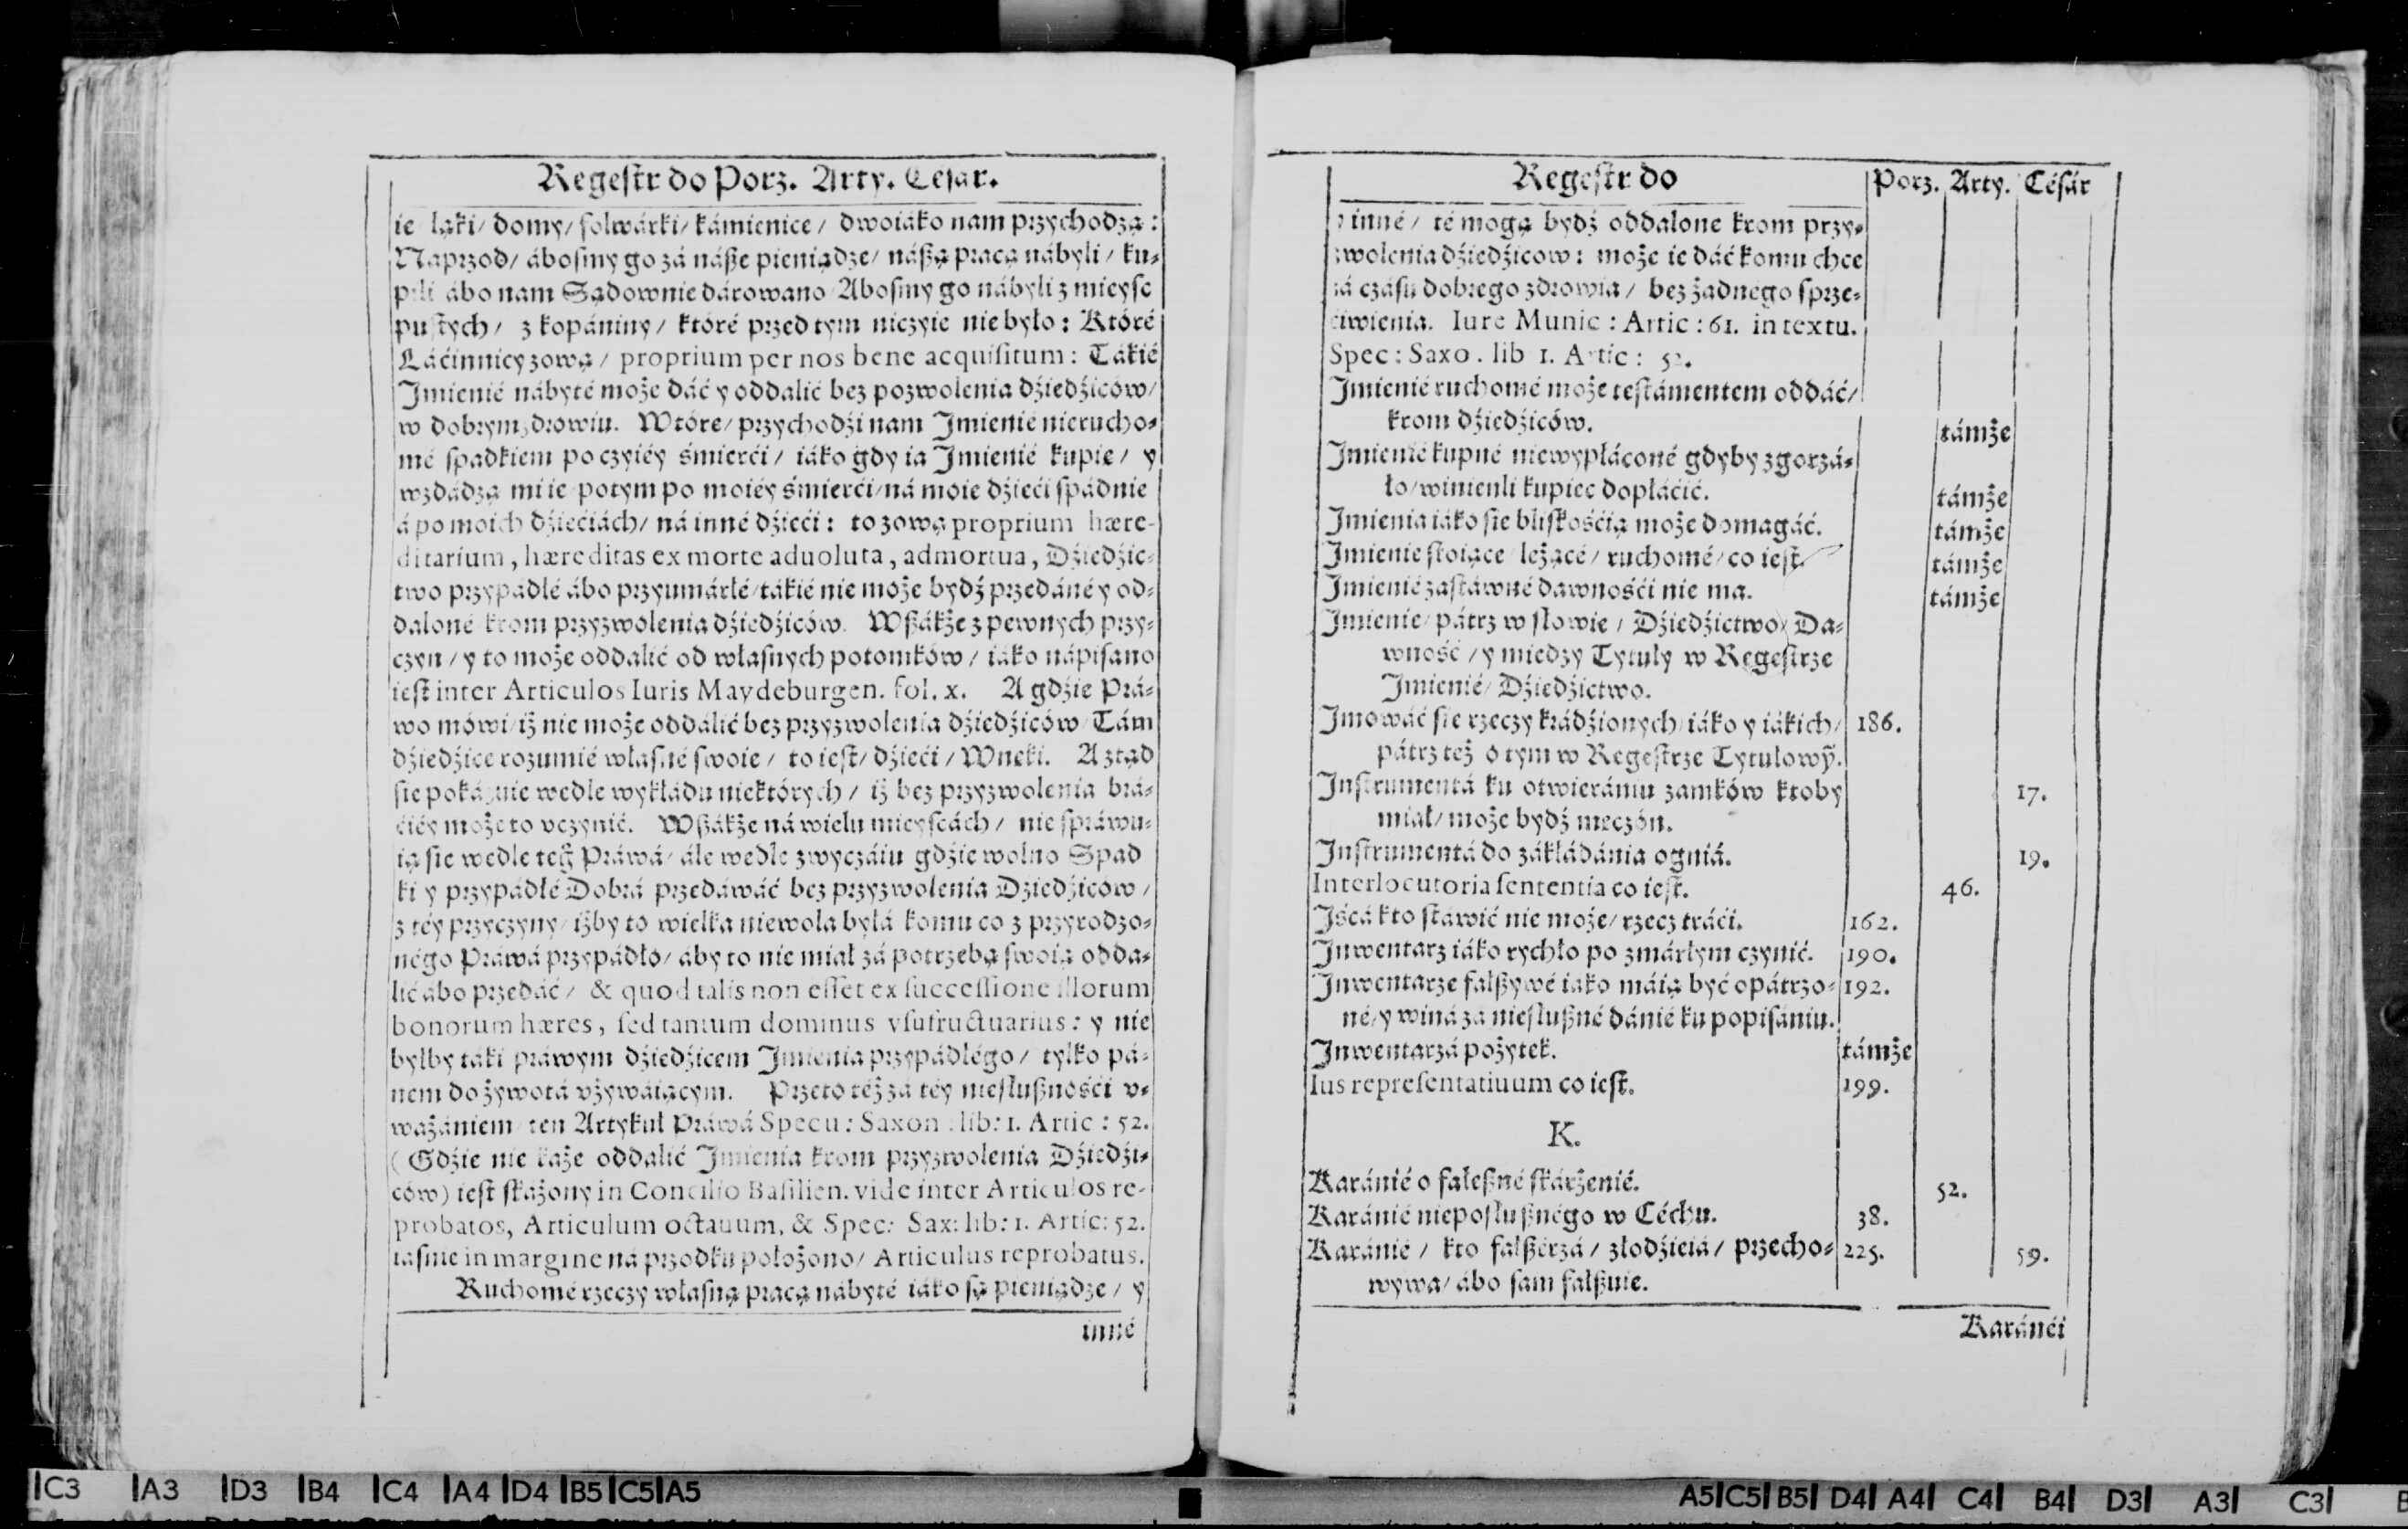 Regestr do Porz. Arty. Cesar.
ie łąki/ domy/ folwárki/ kámienice/ dwoiáko nam przychodzą:
Naprzod/ ábosmy go zá náße pieniądze/ náßą pracą nábyli/ ku-
pili ábo nam Sądownie dárowano/ Abosmy go nábyli z mieysc
pustych/ z kopániny/ któré przed tym niczyie nie było: Któré
Łáćinnicy zową/ proprium per nos bene acquisitum: Tákié
Jmienié nábyté może dáć y oddalić bez pozwolenia dźiedźiców/
w dobrym zdrowiu. Wtóre/ przychodźi nam Jmienié nierucho-
mé spadkiem po czyiéy śmierći/ iáko gdy ia Jmienié kupie/ y
wzdádzą mi ie/ potym po moiéy śmierći/ ná moie dźieći spádnie
á po moich dźiećiách/ ná inné dźieći: to zową proprium hære-
ditarium, hæreditas ex morte aduoluta, admortua, Dźiedźic-
two przypádłé ábo przyumárłé/ tákié nie może bydź przedáné y od-
daloné krom przyzwolenia dźiedźiców. Wßákże z pewnych przy-
czyn/ y to może oddalić od własnych potomków/ iáko nápisano
iest inter Articulos Iuris Maydeburgen. fol. x. A gdźie Prá-
wo mówi/ iż nie może oddálić bez przyzwolenia dźiedźiców/ Tám
dźiedźice rozumié własné swoie/ to iest/ dźieći/ Wneki. A ztąd
sie pokázuie wedle wykłádu niektórych/ iż bez przyzwolenia brá-
ćiéy może to vczynić. Wßákże ná wielu mieyscách/ nie spráwu-
ią sie wedle teg̃ Práwá/ ále wedle zwyczáiu gdźie wolno Spad
ki y przypádłé Dobrá przedáwáć bez przyzwolenia Dziedźiców/
z téy przyczyny/ iżby to wielka niewola byłá komu co z przyrodzo-
négo Práwá przypádło/ aby to nie miał zá potrzebą swoią odda-
lić ábo przedáć/ & quod talis non esset ex successione illorum
bonorum hæres, sed tantum dominus vsufructuarius: y nie
byłby táki práwym dźiedźicem Jmienia przypádłégo/ tylko pá-
nem do żywotá vżywáiącym. Przeto téż zá téy niesłußnośći v-
ważániem/ ten Artykuł Práwá Specu: Saxon: lib: 1. Artic: 52.
(Gdźie nie każe oddalić Jmienia krom przyzwolenia Dźiedźi-
ców) iest skażony in Concilio Basilien. vide inter Articulos re-
probatos, Articulum octauum, & Spec: Sax: lib: 1. Artic: 52.
iasnie in margine ná przodku położono/ Articulus reprobatus.
Ruchomé rzeczy własną pracą nábyté iáko są pieniądze/ y
inné
Regestr do Porz. Arty. Césár
inné/ té mogą bydź oddalone krom przy-
zwolenia dźiedźicow: może ie dáć komu chce
zá czásu dobrego zdrowia/ bez żadnégo sprze-
ćiwienia. Iure Munic: Artic: 61. in textu.
Spec: Saxo. lib 1. Artic: 52.
Jmienié ruchomé może testámentem oddáć/
krom dźiedźiców. támże
Jmienié kupné niewypłáconé gdyby zgorzá-
ło/ winienli kupiec dopłáćić. támże
Jmienia iáko sie bliskośćią może domagáć. támże
Jmienie stoiące/ leżącé/ ruchomé/ co iest. támże
Jmienié zastáwné dawnośći nie ma. támże
Jmienie/ pátrz w słowie/ Dźiedźictwo/ Da-
wność/ y miedzy Tytuły w Regestrze
Jmienié/ Dźiedźictwo.
Jmowáć sie rzeczy krádźionych/ iáko y iákich/ 186.
pátrz też o tym w Regestrze Tytulowỹ.
Instrumentá ku otwierániu zamków ktoby 17.
miał/ może bydź męczón.
Instrumentá do zákłádánia ogniá. 19.
Interlocutoria sententia co iest. 46.
Jśćá kto stáwić nie może/ rzecz tráći. 162.
Jnwentarz iáko rychło po zmárłym czynić. 190.
Jnwentarze falßywé iako máią być opátrzo- 192.
né/ y winá zá niesłußné dánié ku popisániu.
Jnwentarzá pożytek. támże
Ius representatiuum co iest. 199.
K.
Karánié o faleßné skárżenié. 52.
Karánié nieposłußnégo w Céchu. 38.
Karánié/ kto falßérzá/ złodźieiá/ przecho- 225. 59.
wywa/ ábo sam falßuie.
Karánéi
C3 A3 D3 B4 C4 A4 D4 B5 C5 A5
A5 C5 B5 D4 A4 C4 B4 D3 A3 C3